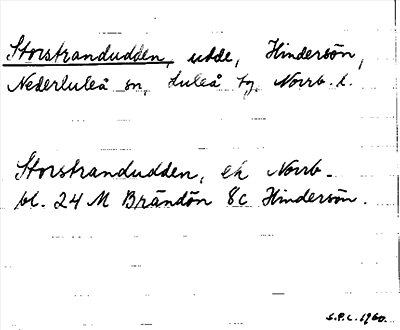 Storstrandudden, udde, Hindersön,
Nederluleå sn, Luleå tg, Norrb. l.
Storstrandudden, ek Norrb.
bl. 24 M Brändön 8c Hindersön.
S.P.L. 1960.